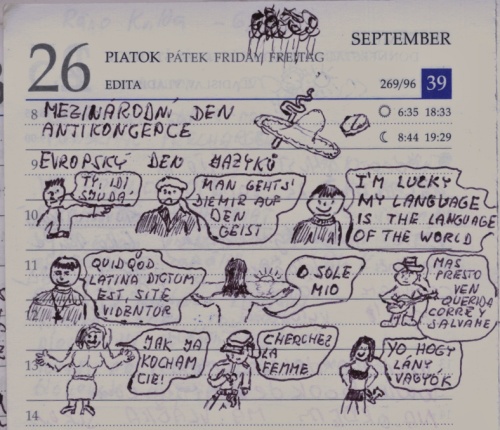 SEPTEMBER
26
PIATOK PÁTEK FRIDAY FREITAG
EDITA
269/96 39
6:35 18:33
8:44 19:29
8 MEZINÁRODNÍ DEN
ANTIKONCEPCE
9 EVROPSKÝ DEN JAZYKŮ
TY, IDI
SJUDÁ!
MAN GEHTS'
DIE MIR AUF
DEN
GEIST
I'M LUCKY
MY LANGUAGE
IS THE LANGUAGE
OF THE WORLD
10
11
QUIDQŌD
LATINA DICTUM
EST, SITE
VIDENTOR
O SOLE
MIO
MAS
PRESTO
VEN
QUERIDA
CORRE Y
SALVAME
12
JAK JA
KOCHAM
CIE!
CHERCHEZ
LA
FEMME
YO, HOGY
LÁNY
VAGYOK
13
14